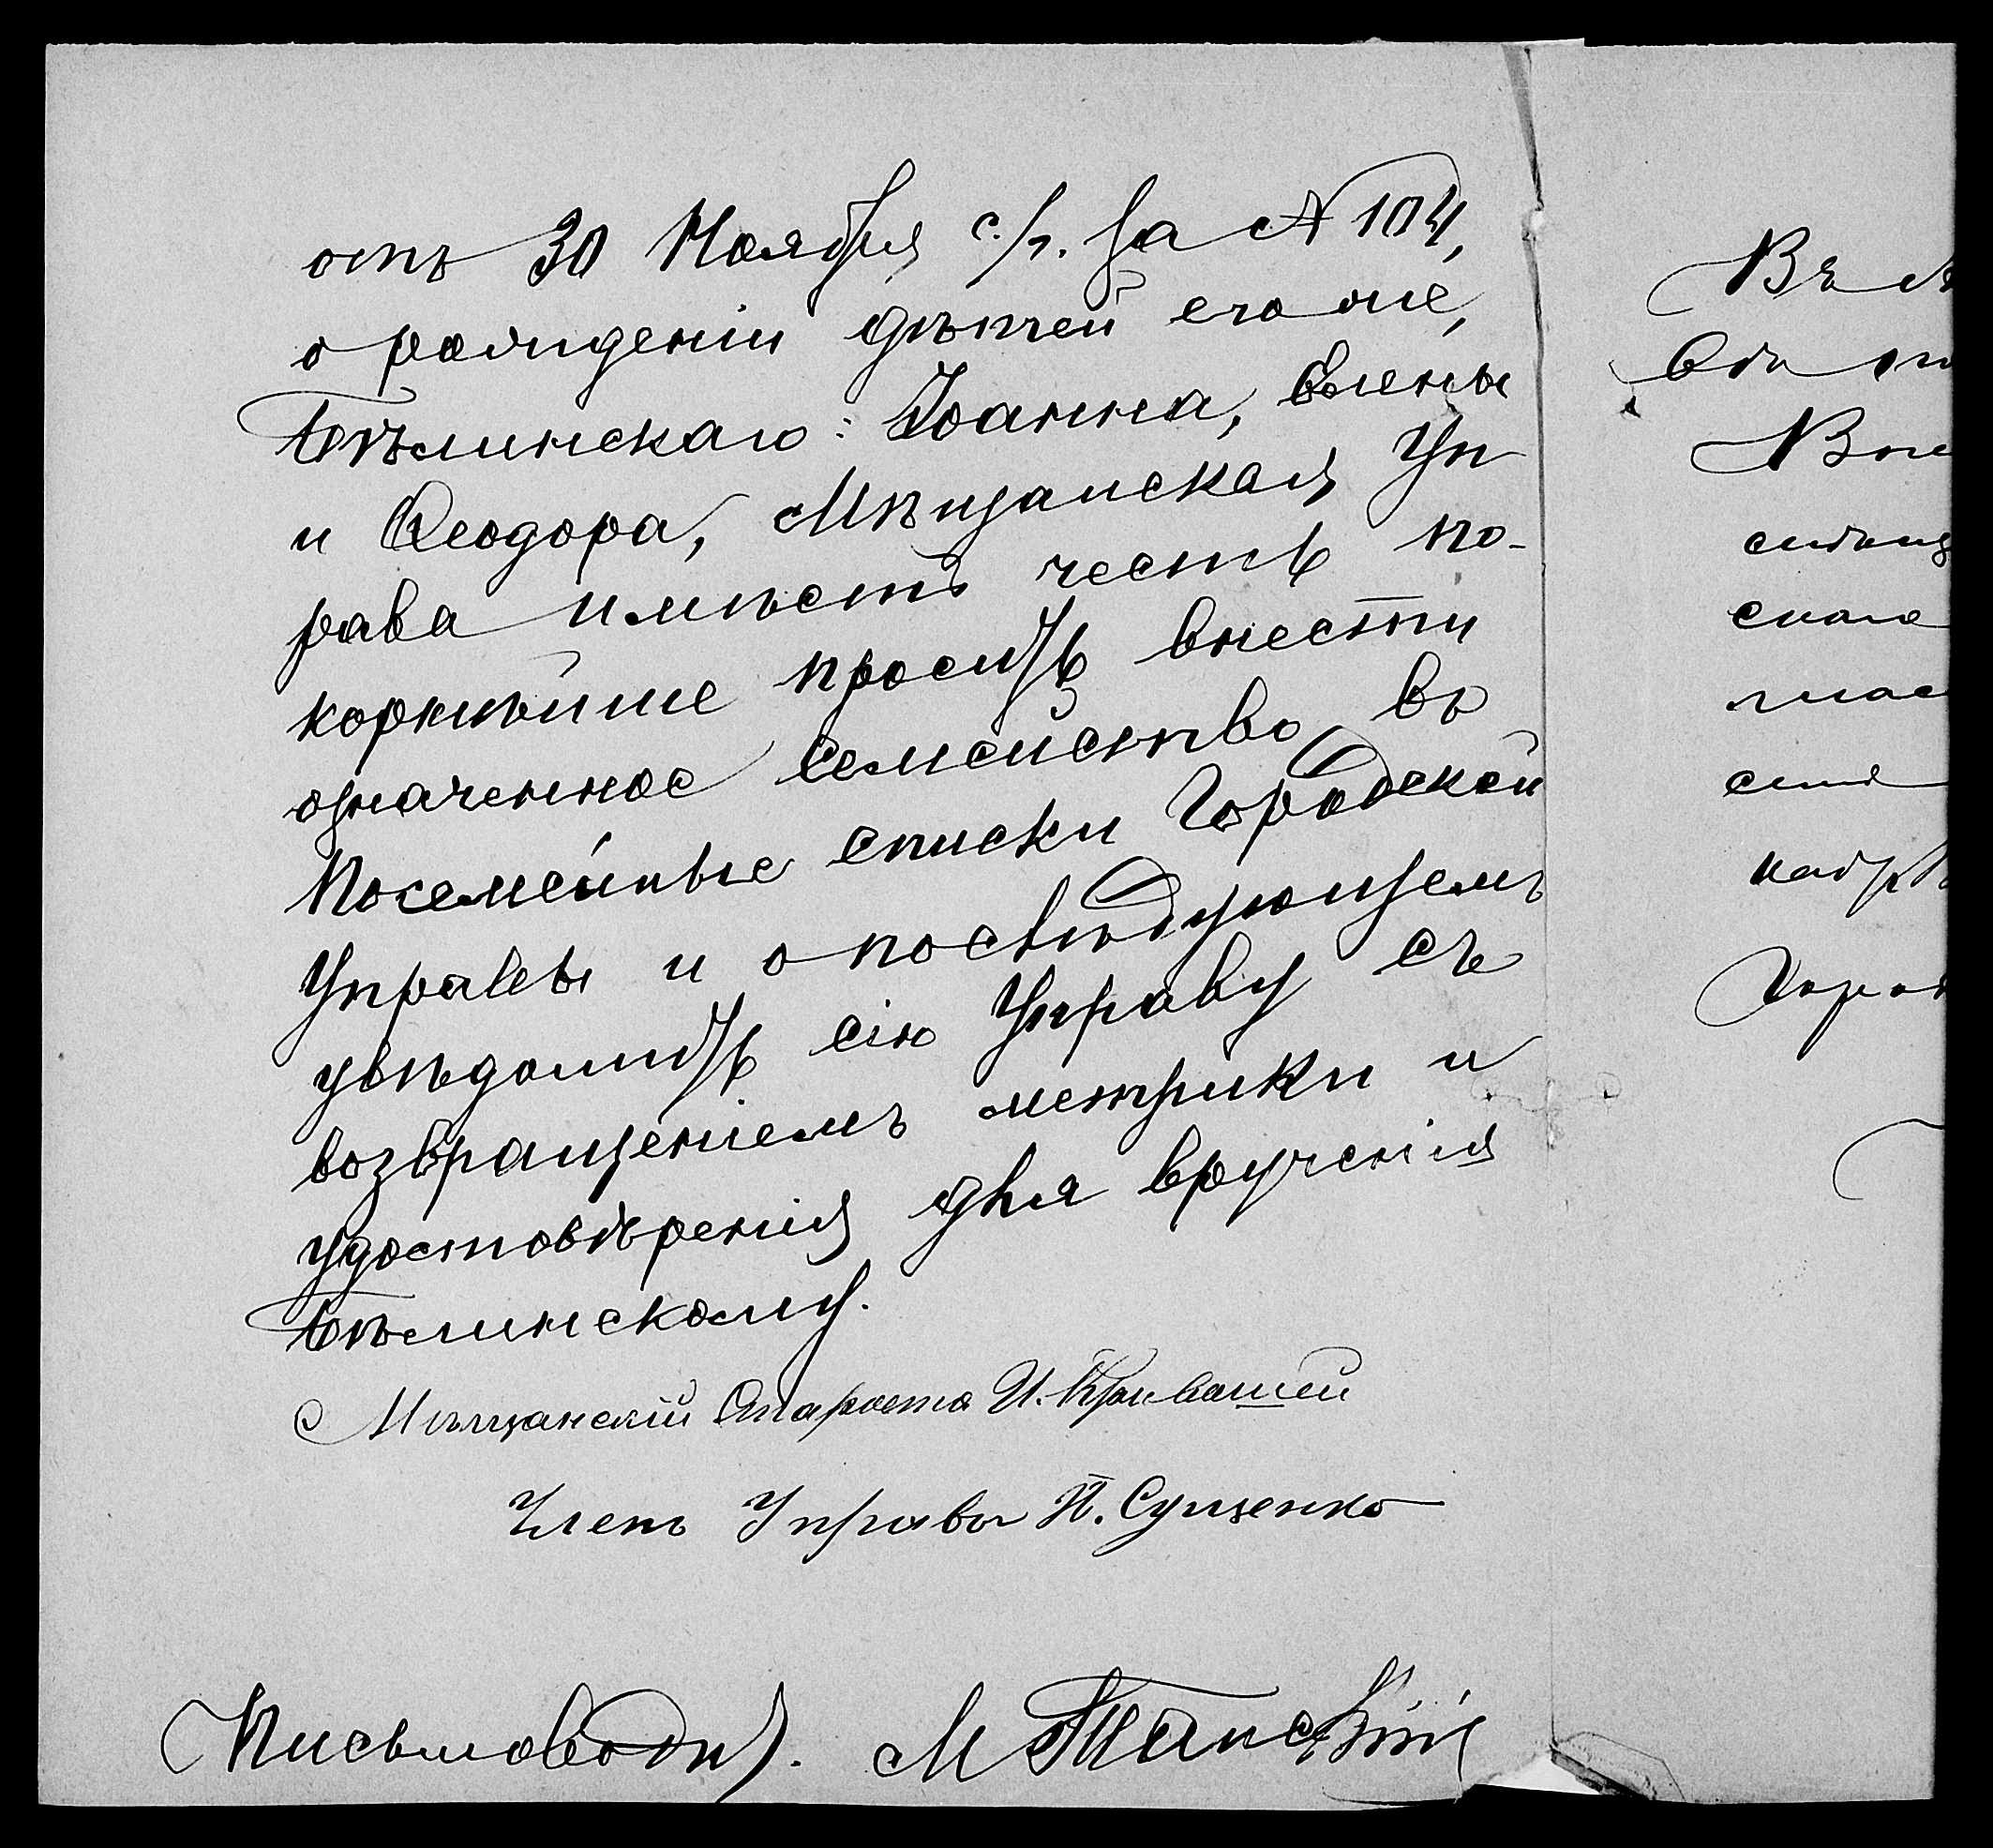 отъ 30 Ноября с./г. за № 104,
о рожденіи дѣтей его же,
Бѣлинскаго: Іоанна, Елены
и Ѳеодора, Мѣщанская Уп
рава имѣетъ честь по-
корнѣйше просить внести
означенное семейство въ
посемейные списки Городской
Управы и о послѣдующемъ
увѣдомить сію Управу съ
возвращеніемъ метрики и
удостовѣренія для врученія
Бѣлинскому.
Мѣщанскій Староста И.
Членъ Управы П. Сущенко
Письмоводи). М
Въ